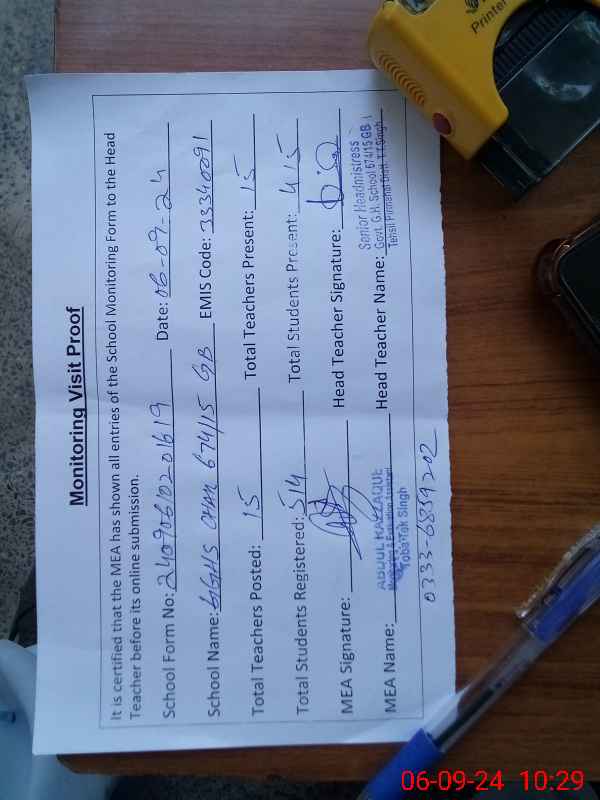 Monitoring Visit Proof
It is certified that the MEA has shown all entries of the School Monitoring Form to the Head
Teacher before its online submission.
School Form No: 24090610201619 Date: 06-09-24
School Name: GGHS CHAK 674/15 GB EMIS Code: 33340091
Total Teachers Posted: 15 Total Teachers Present: 15
Total Students Registered: 514 Total Students Present: 415
MEA Signature: Head Teacher Signature:
MEA Name: ABDUL RAZZAQUE Head Teacher Name: Senior Headmistress
Monitoring & Evaluation Assistant Govt. G.H. School 674/15 GB
Toba Tek Singh Tehsil Pirmahal Distt. T.T.Singh
0333-6859202
Printer
06-09-24 10:29